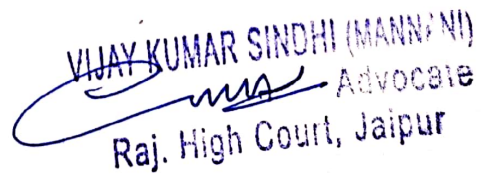 VIJAY KUMAR SINDHI (MANNANI)
Advocate
Raj. High Court, Jaipur